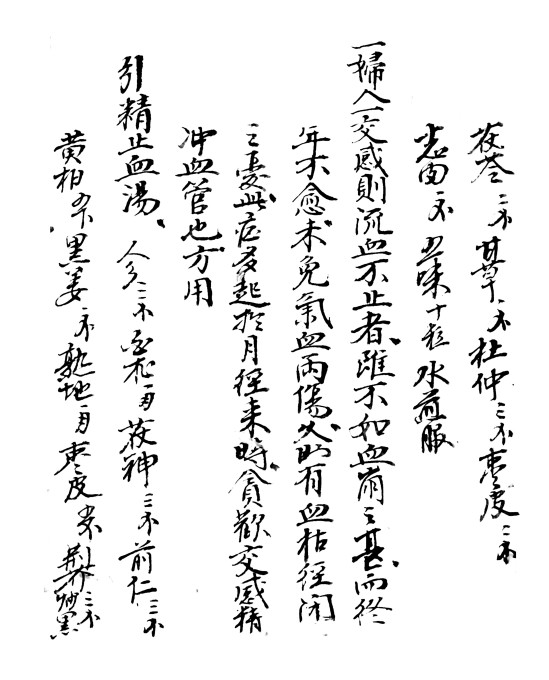 茯苓二不甘草一不杜仲三不枣皮二不
故肉一不五味十粒水煎服
一婦人交感則流血不止者雖不如血崩之甚而终
年不愈未免氣血両傷久則有血枯经闭
之憂此症多起於月经来時貪歡交感精
冲血管也方用
引精止血湯人参三不白术一两茯神三不前仁三不
黄柏五卜黑姜一不熟地一两枣皮五不荆芥三不炒黑